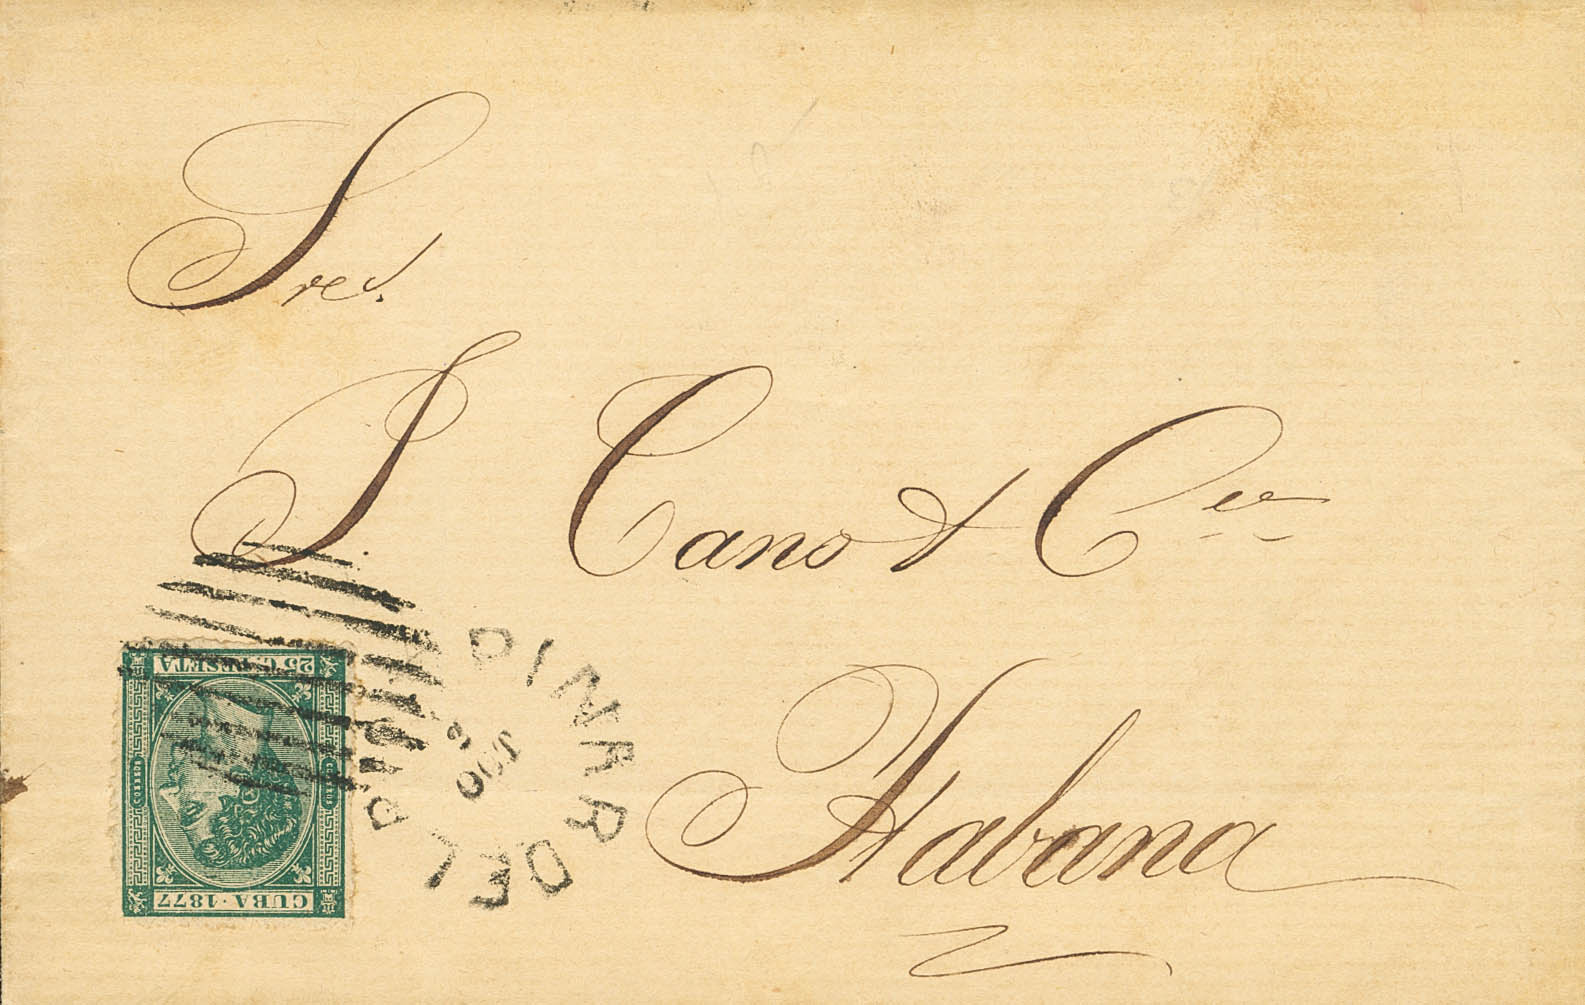 Sres.
J. Cano & Cia
Habana
25 C. PESETA
CORREOS
CORREOS
CUBA · 1877
PINAR DEL RIO